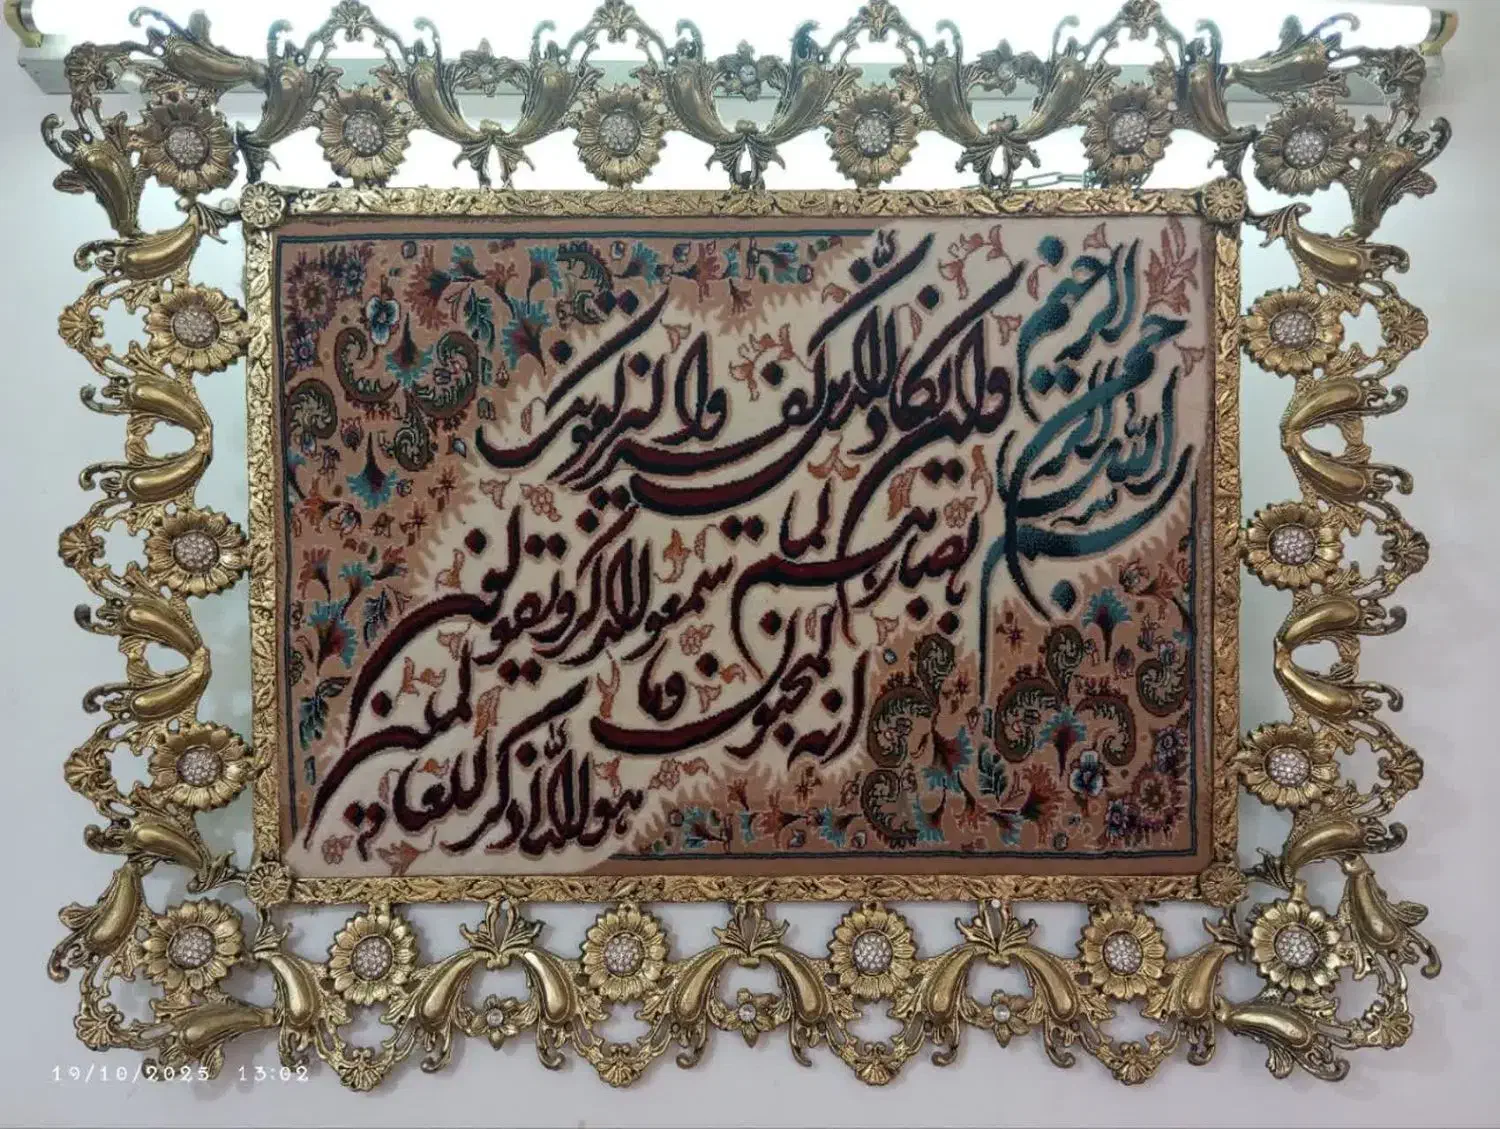 بسم الله الرحمن الرحیم
وان یکاد الذین کفروا لیزلقونک
بابصارهم لما سمعوا الذکر و یقولون
انه لمجنون و ما هو الا ذکر للعالمین
19/10/2025 13:02